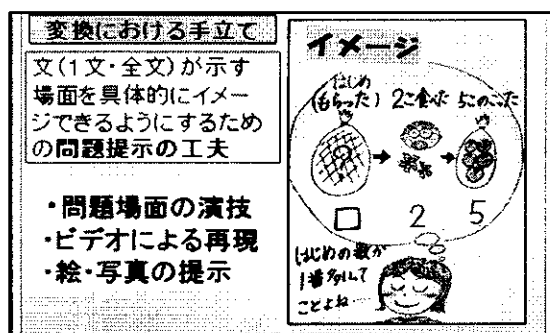 変換における手立て
文(1文・全文)が示す
場面を具体的にイメー
ジできるようにするため
の問題提示の工夫
・問題場面の演技
・ビデオによる再現
・絵・写真の提示
イメージ
はじめ
(もらった) 2こ食べた 5このこった
□ 2 5
はじめの数が
1番多いって
ことよね…